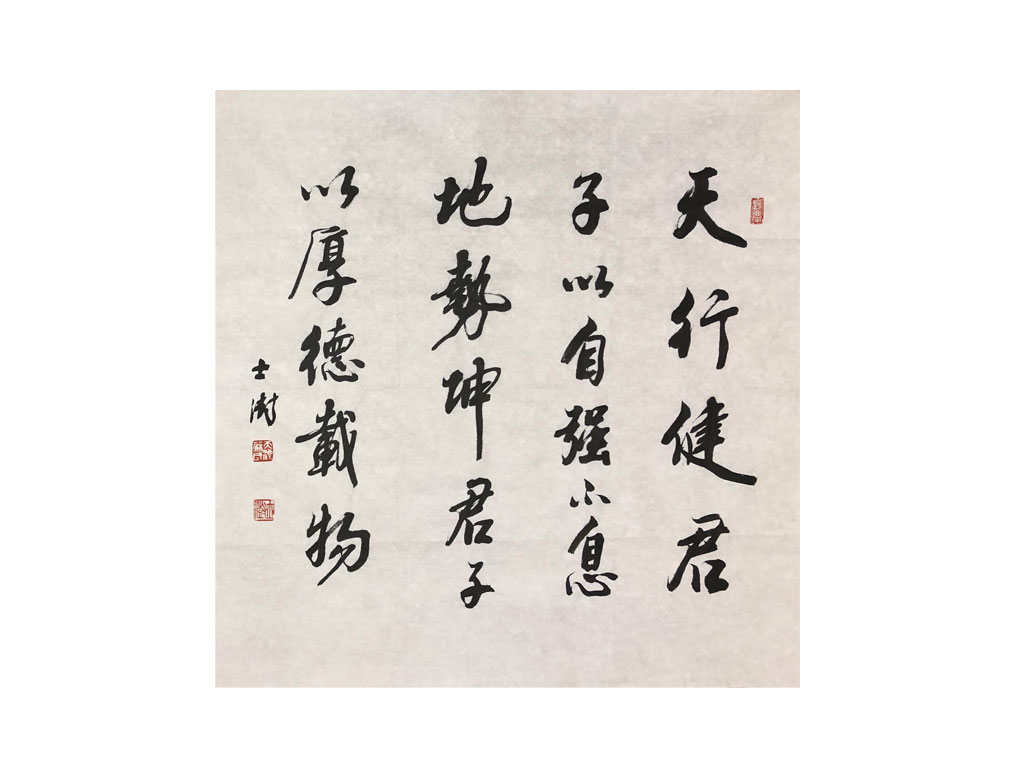 天行健君
子以自强不息
地勢坤君子
以厚德載物
士澍